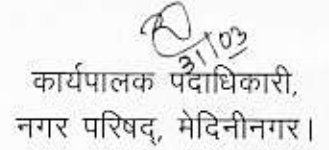 31/03
कार्यपालक पदाधिकारी,
नगर परिषद्, मेदिनीनगर।